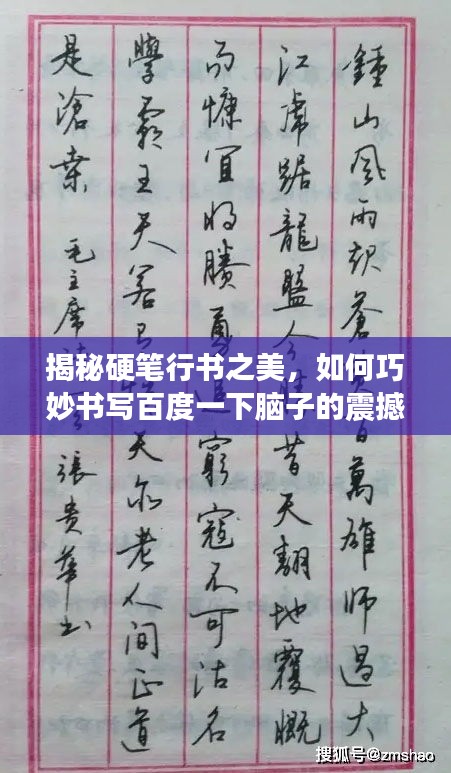 鍾山风雨起蒼百萬雄師過大
江虎踞龍盤今昔天翻地覆慨
而慷宜将賸勇追窮寇不可沽名
學霸王天若天亦老人间正道
是滄桑 毛主席 張贵華书
揭秘硬笔行书之美，如何巧
妙书写百度一下脑子的震撼
搜狐号@zmshao